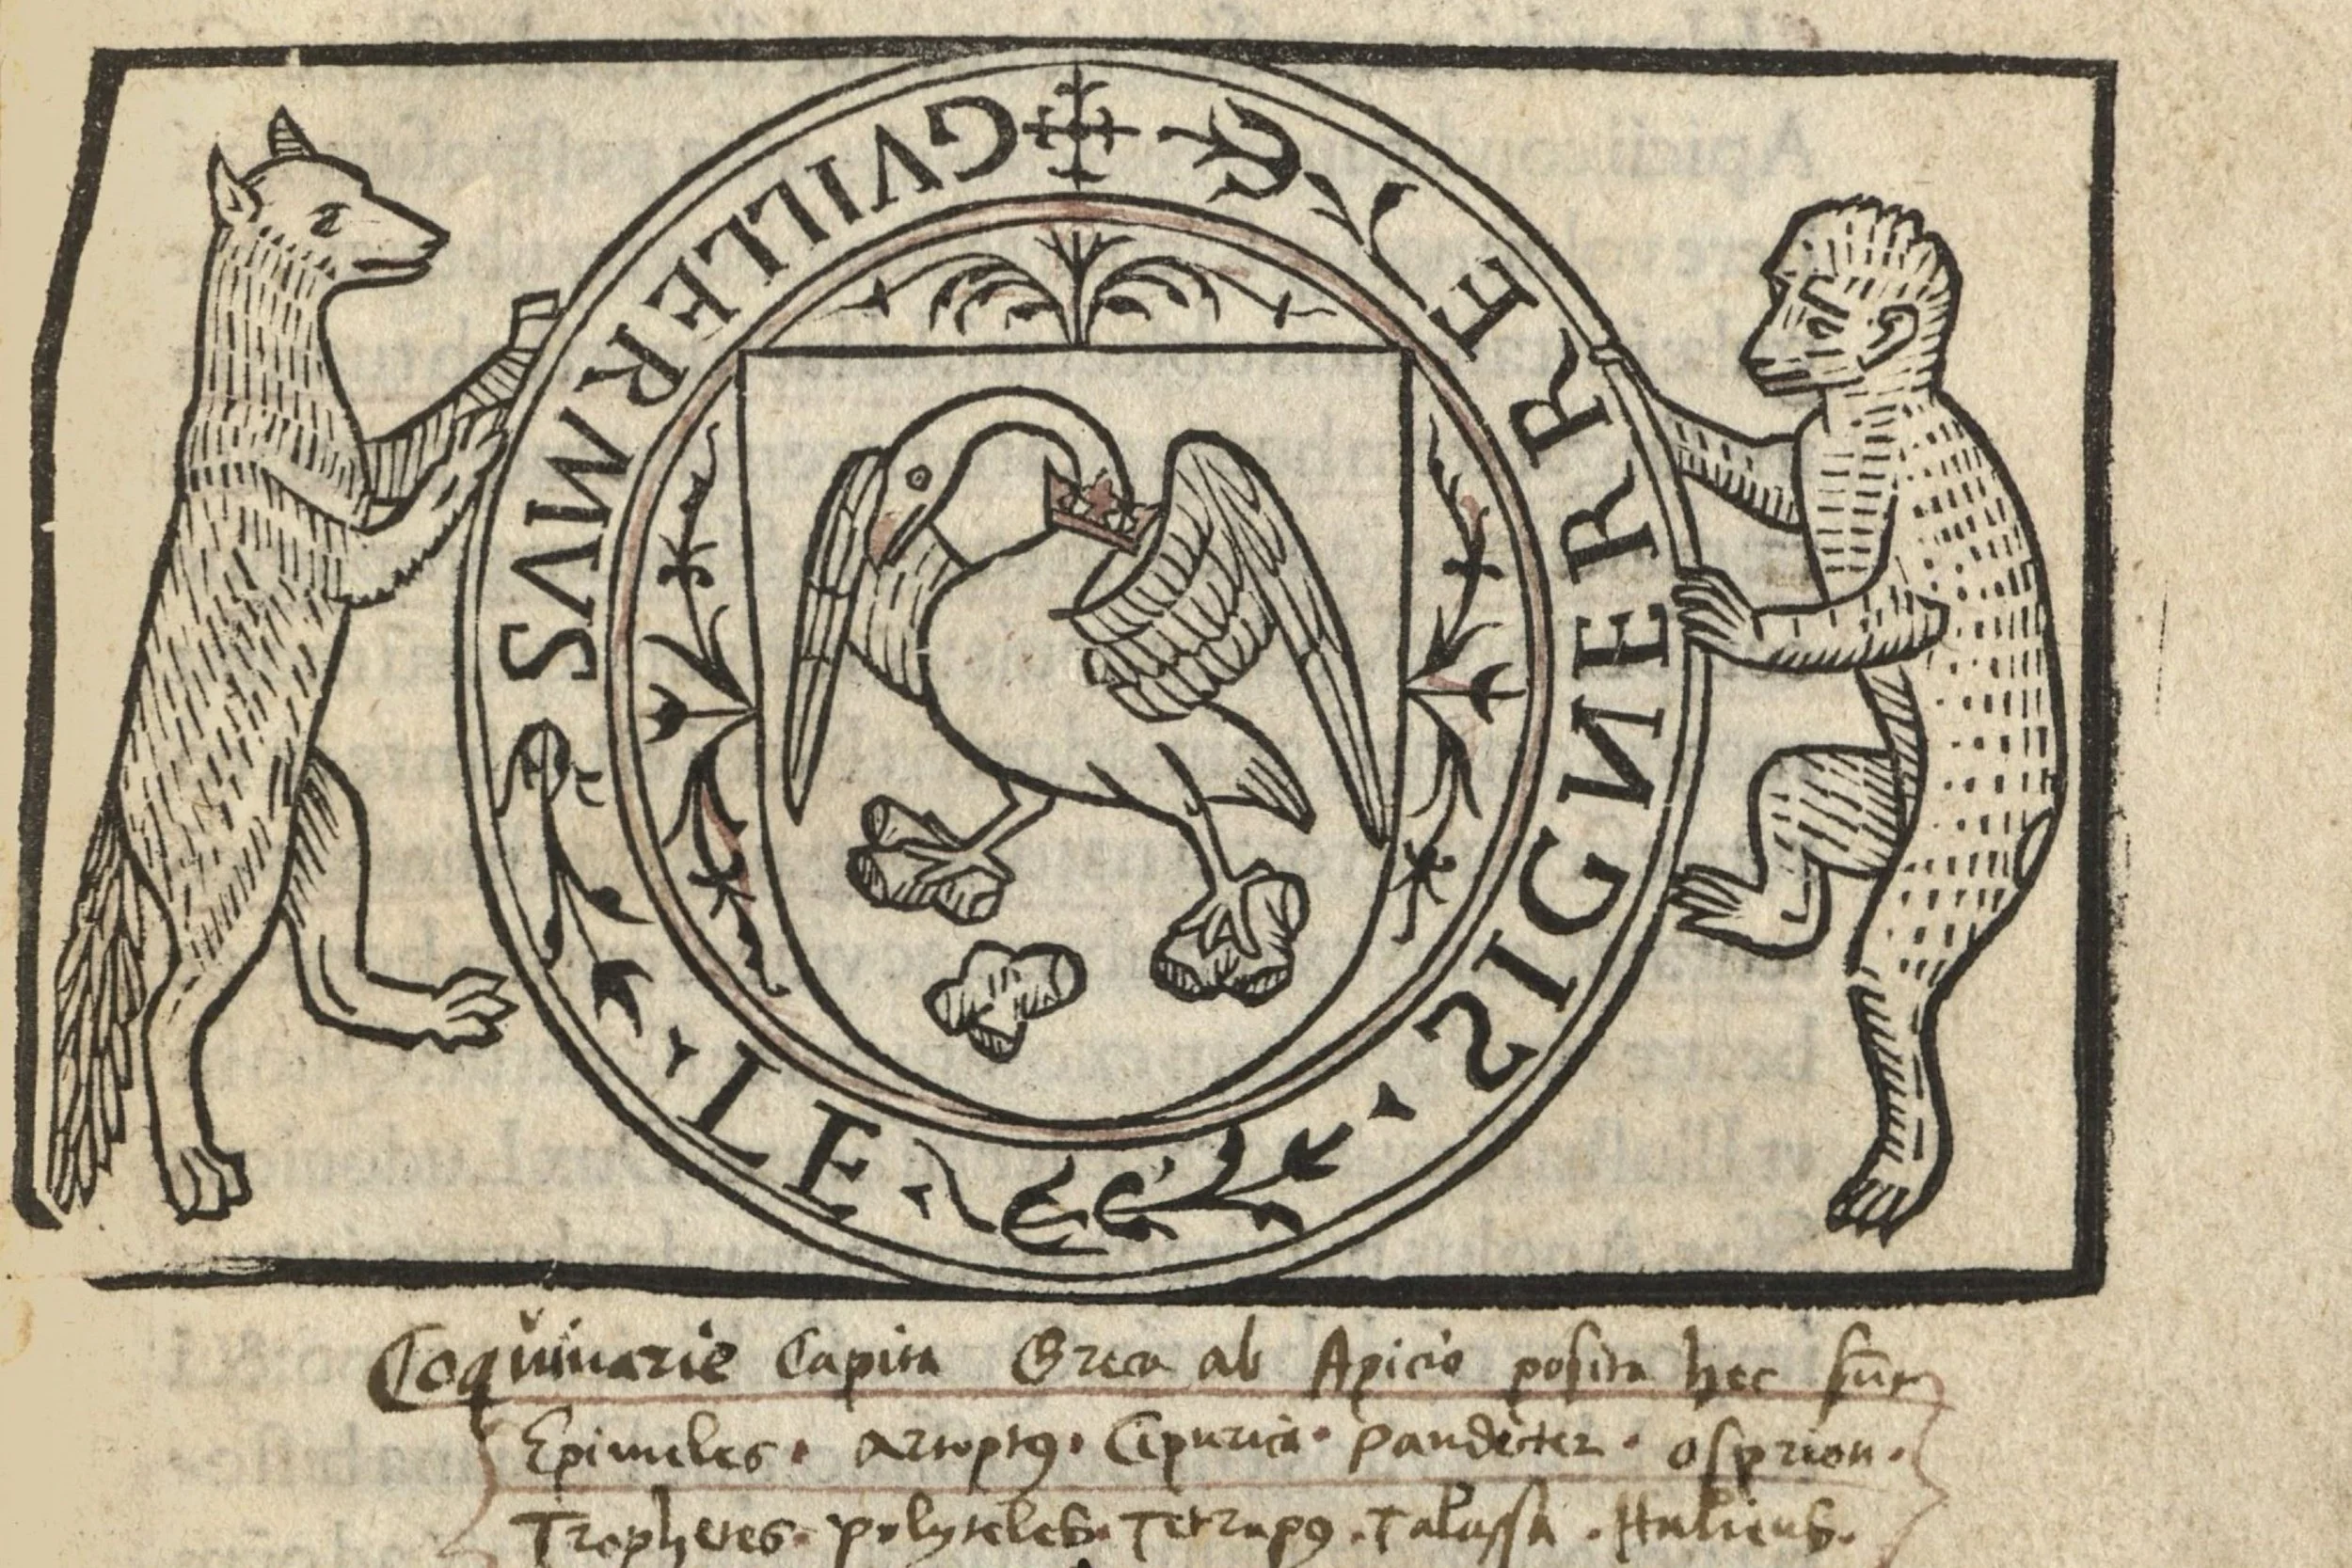 GVILLERMVS · LE · SIGNERRE
Coquinarie Capita Greca ab Apicio posita hec sūt
Epimeles · artoptꝰ · Cepurica · Pandecter · osprion ·
Trophetes · polyteles · Tetrapꝰ · Talassa · Halieus ·